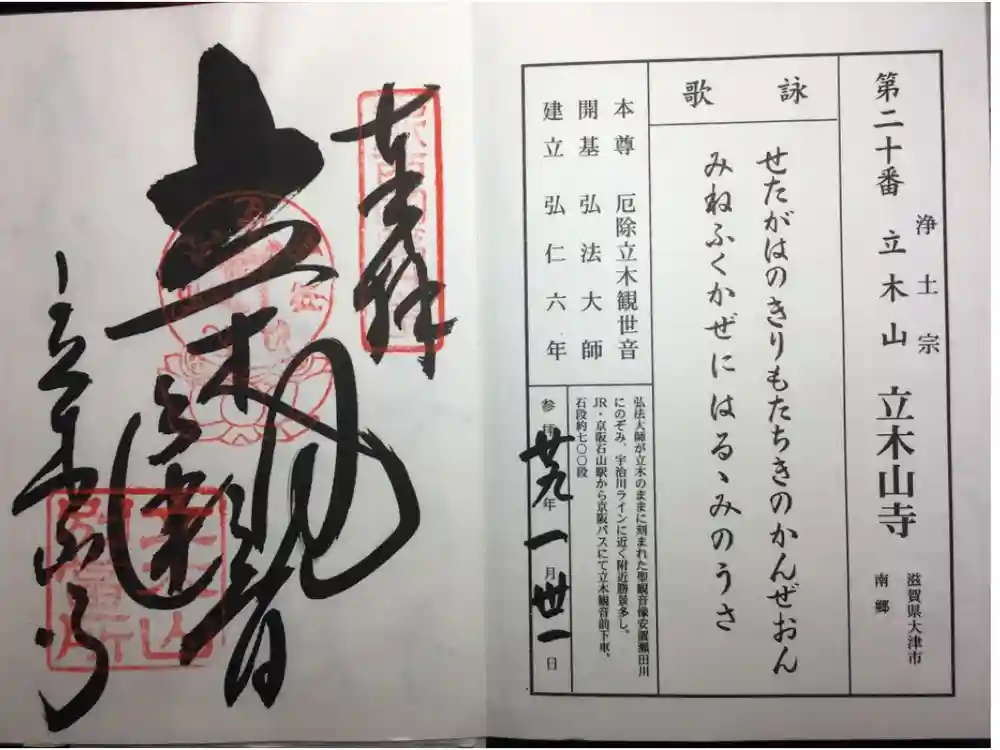 第二十番 立木山 立木山寺
浄土宗
滋賀県大津市
南郷
詠歌
せたがはのきりもたちきのかんぜおん
みねふくかぜにはるゝみのうさ
本尊 厄除立木観世音
開基 弘法大師
建立 弘仁六年
弘法大師が立木のままに刻まれた聖観音像安置瀬田川
にのぞみ、宇治川ラインに近く附近勝景多し。
JR・京阪石山駅から京阪バスにて立木観音前下車、
石段約七〇〇段
参拝 廿九年 一月 卅一日
奉拝
立木観世音
立木山寺